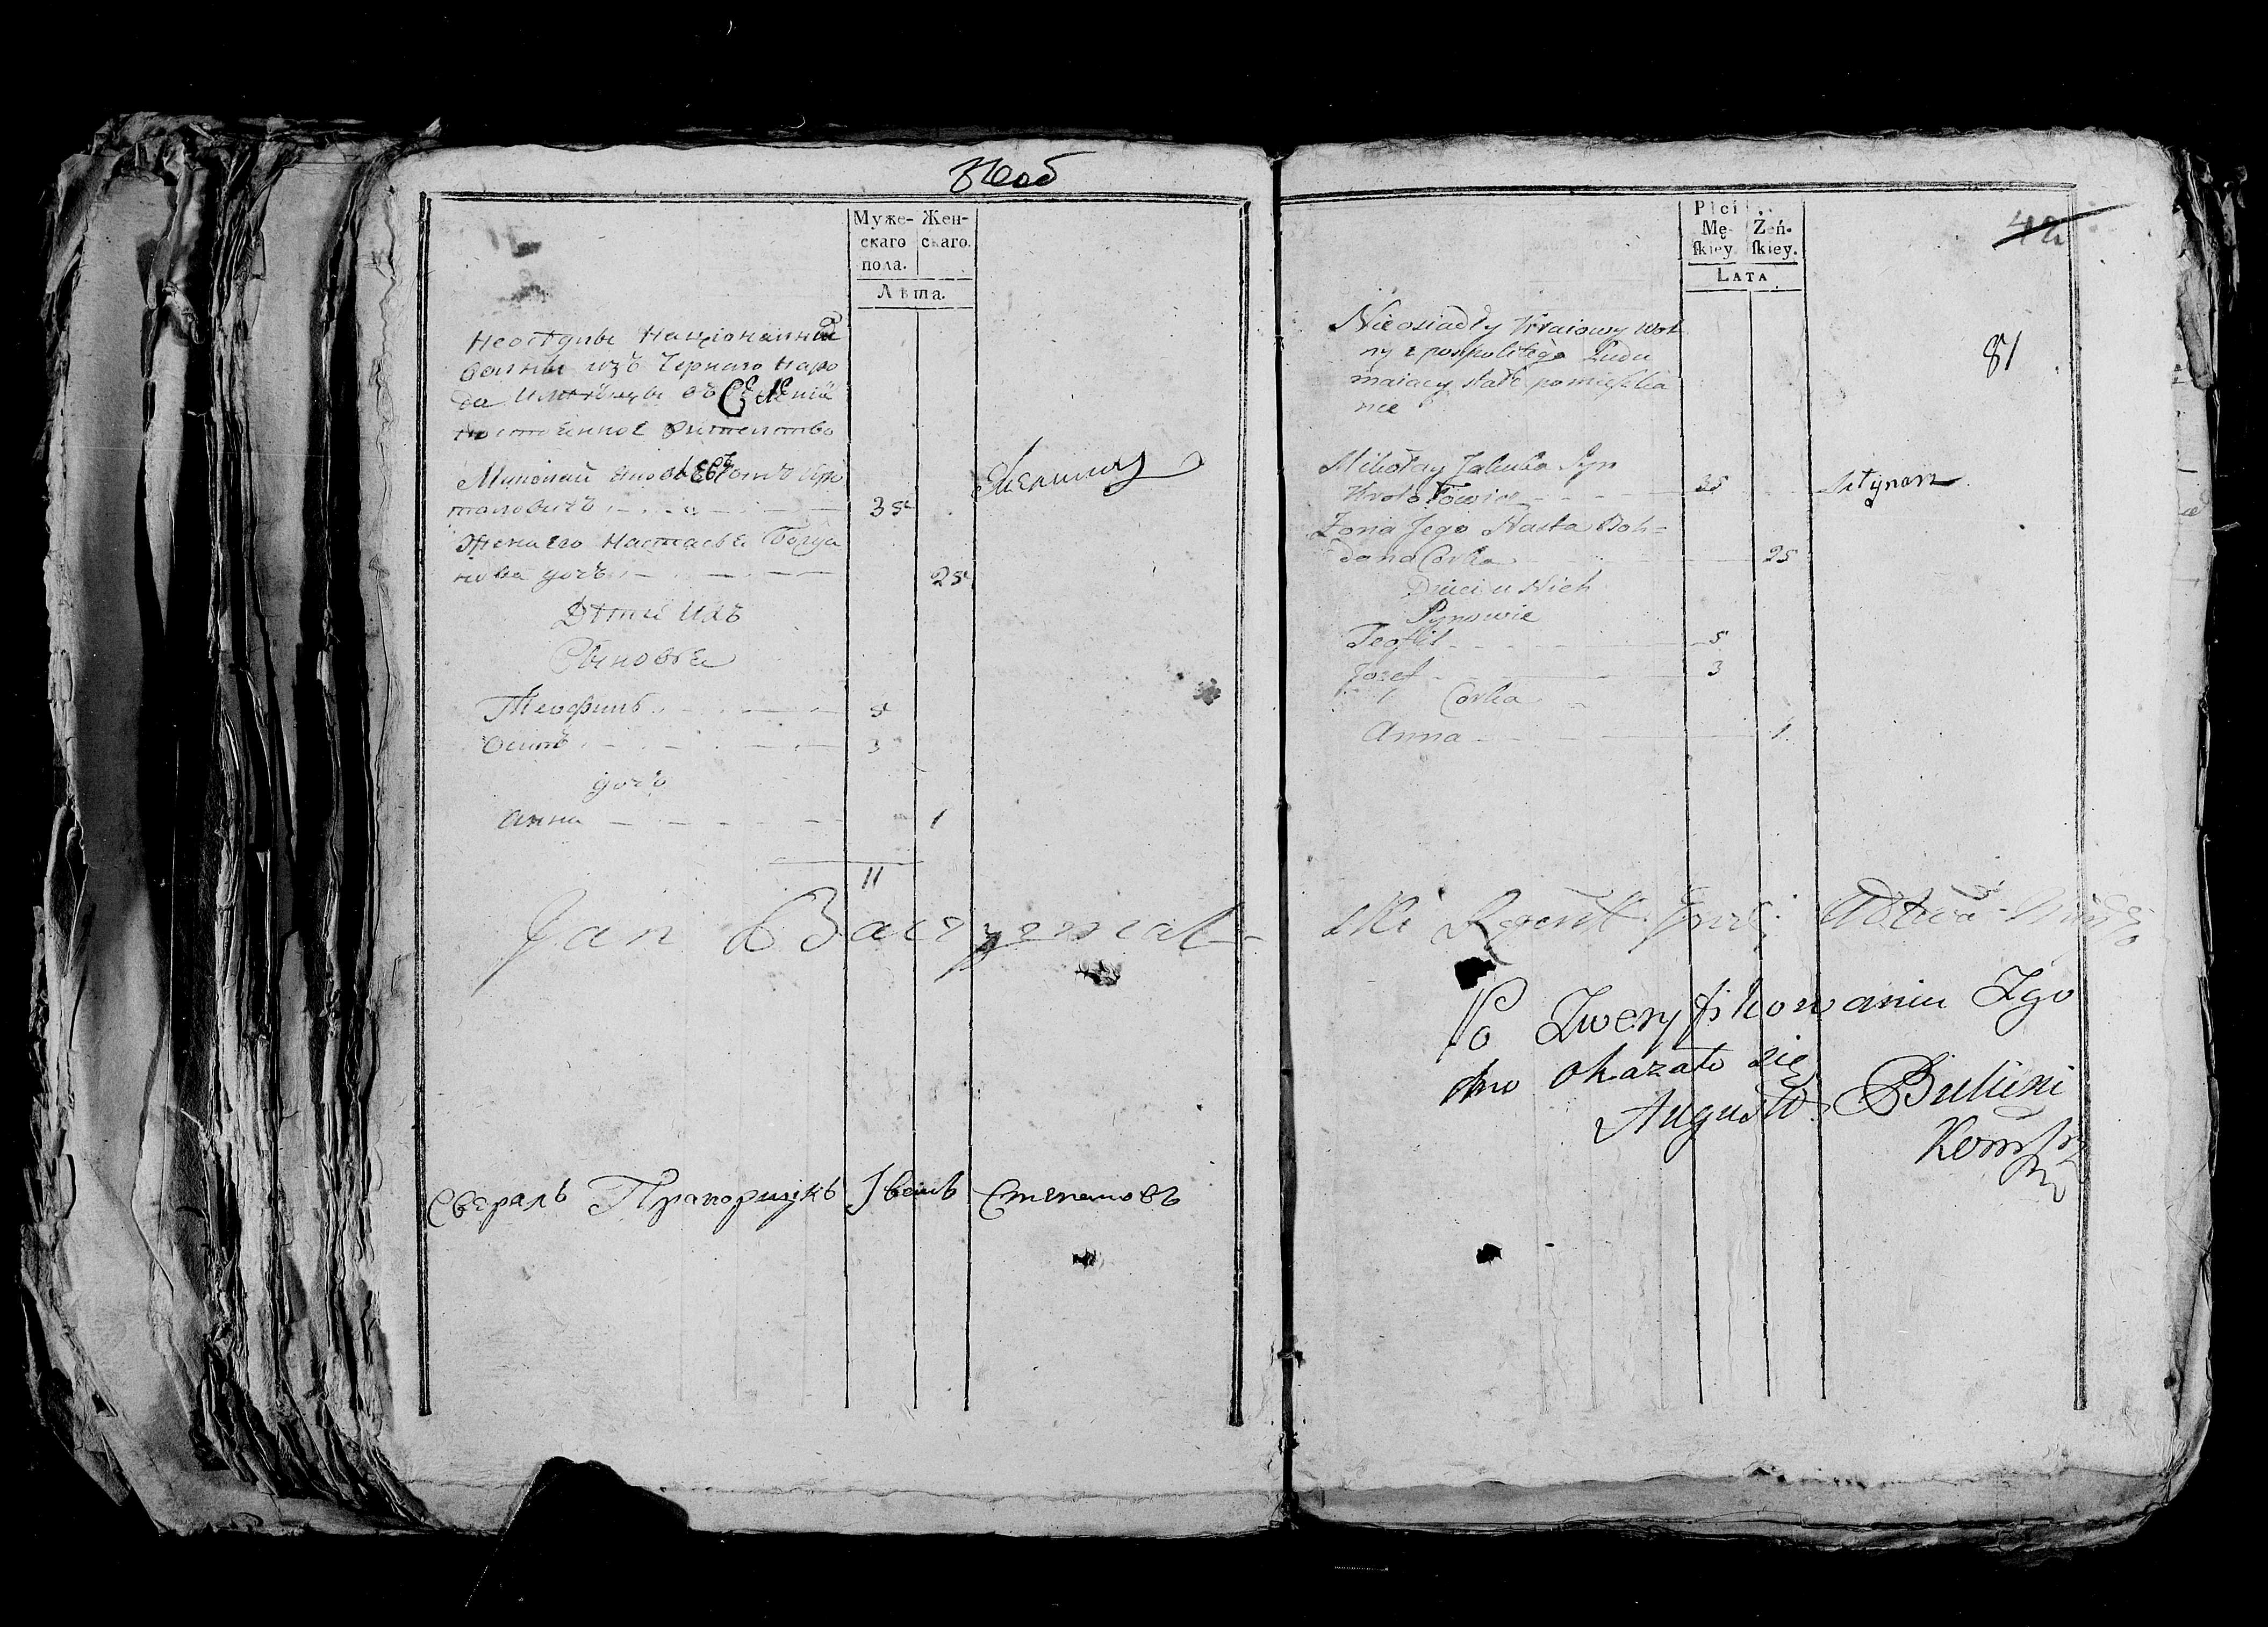 80об
Муже-
скаго
пола.
Жен-
скаго.
Лѣта.
Неосѣдлые Націоналные
волны изъ Чернаго наро
да имѣющіе въ Селеніи
постоянное жителство
35
Жена его Настасья Богда
нова дочь
25
Дѣти ихъ
Сыновья
Теофилъ 5
Осипъ 3
дочь
Анна 1
11
Jan
Сверялъ Прапорщикъ Іванъ Степановъ
Płci
Mę-
ſkiey
Żeń-
ſkiey.
LATA
42
81
Nieosiadły Kraiowy Wol
ny z pospolitego Ludu
maiący stałe pomieszka
nie
Mikołay Jakuba Syn
35
Młynarz
Żona Jego Nasta Boh=
dana Corka 25
Dzieci u Nich
Synowie
Teofil 5
Jozef 3
Corka
Anna 1
ski Regent
Po Zweryfikowaniu Zgo
dno okazało się
August